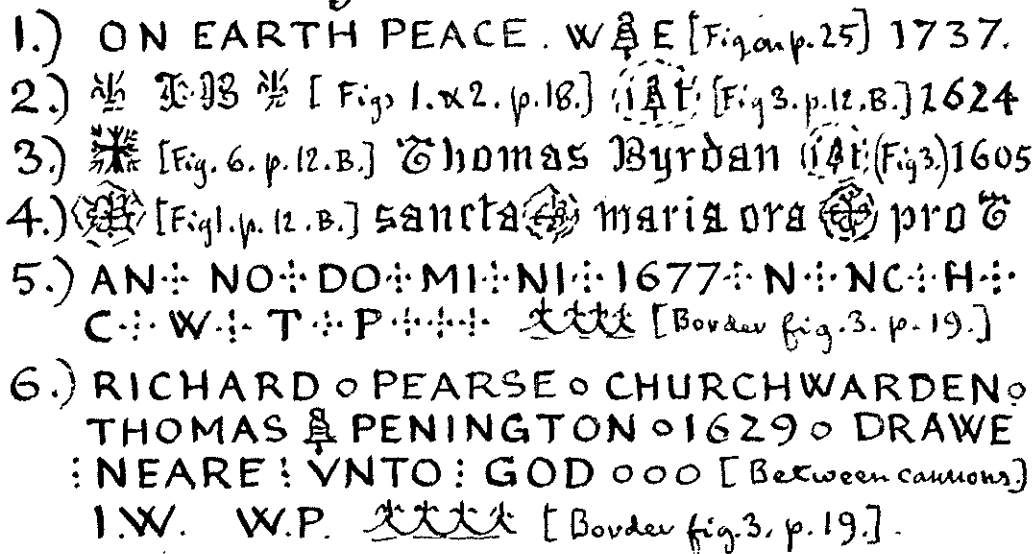 1.) ON EARTH PEACE. W E [Fig on p. 25] 1737.
2.) I B [Figs 1. & 2. p. 18.] i t [Fig 3. p. 12. B.] 1624
3.) [Fig. 6. p. 12. B.] Thomas Byrdan i t (Fig 3.) 1605
4.) [Fig 1. p. 12. B.] sancta maria ora pro T
5.) AN NO DO MI NI 1677 N NC H
C W T P [Border fig. 3. p. 19.]
6.) RICHARD o PEARSE o CHURCHWARDEN o
THOMAS PENINGTON o 1629 o DRAWE
: NEARE : VNTO : GOD o o o [Between cannons.]
I.W. W.P. [Border fig. 3. p. 19.].